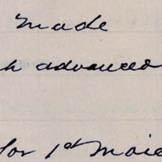 made
h advanced
for 1st Maid